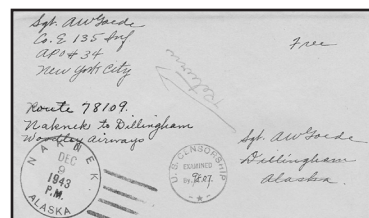 Sgt. AW Goede
Co. E 135 Inf
APO # 34
New York City
Free
Return
Route 78109.
Naknek to Dillingham
Woodley Airways
Sgt. AW Goede
Dillingham
Alaska.
NAKNEK.
DEC
9
1943
P.M.
ALASKA
U.S. CENSORSHIP
EXAMINED
BY